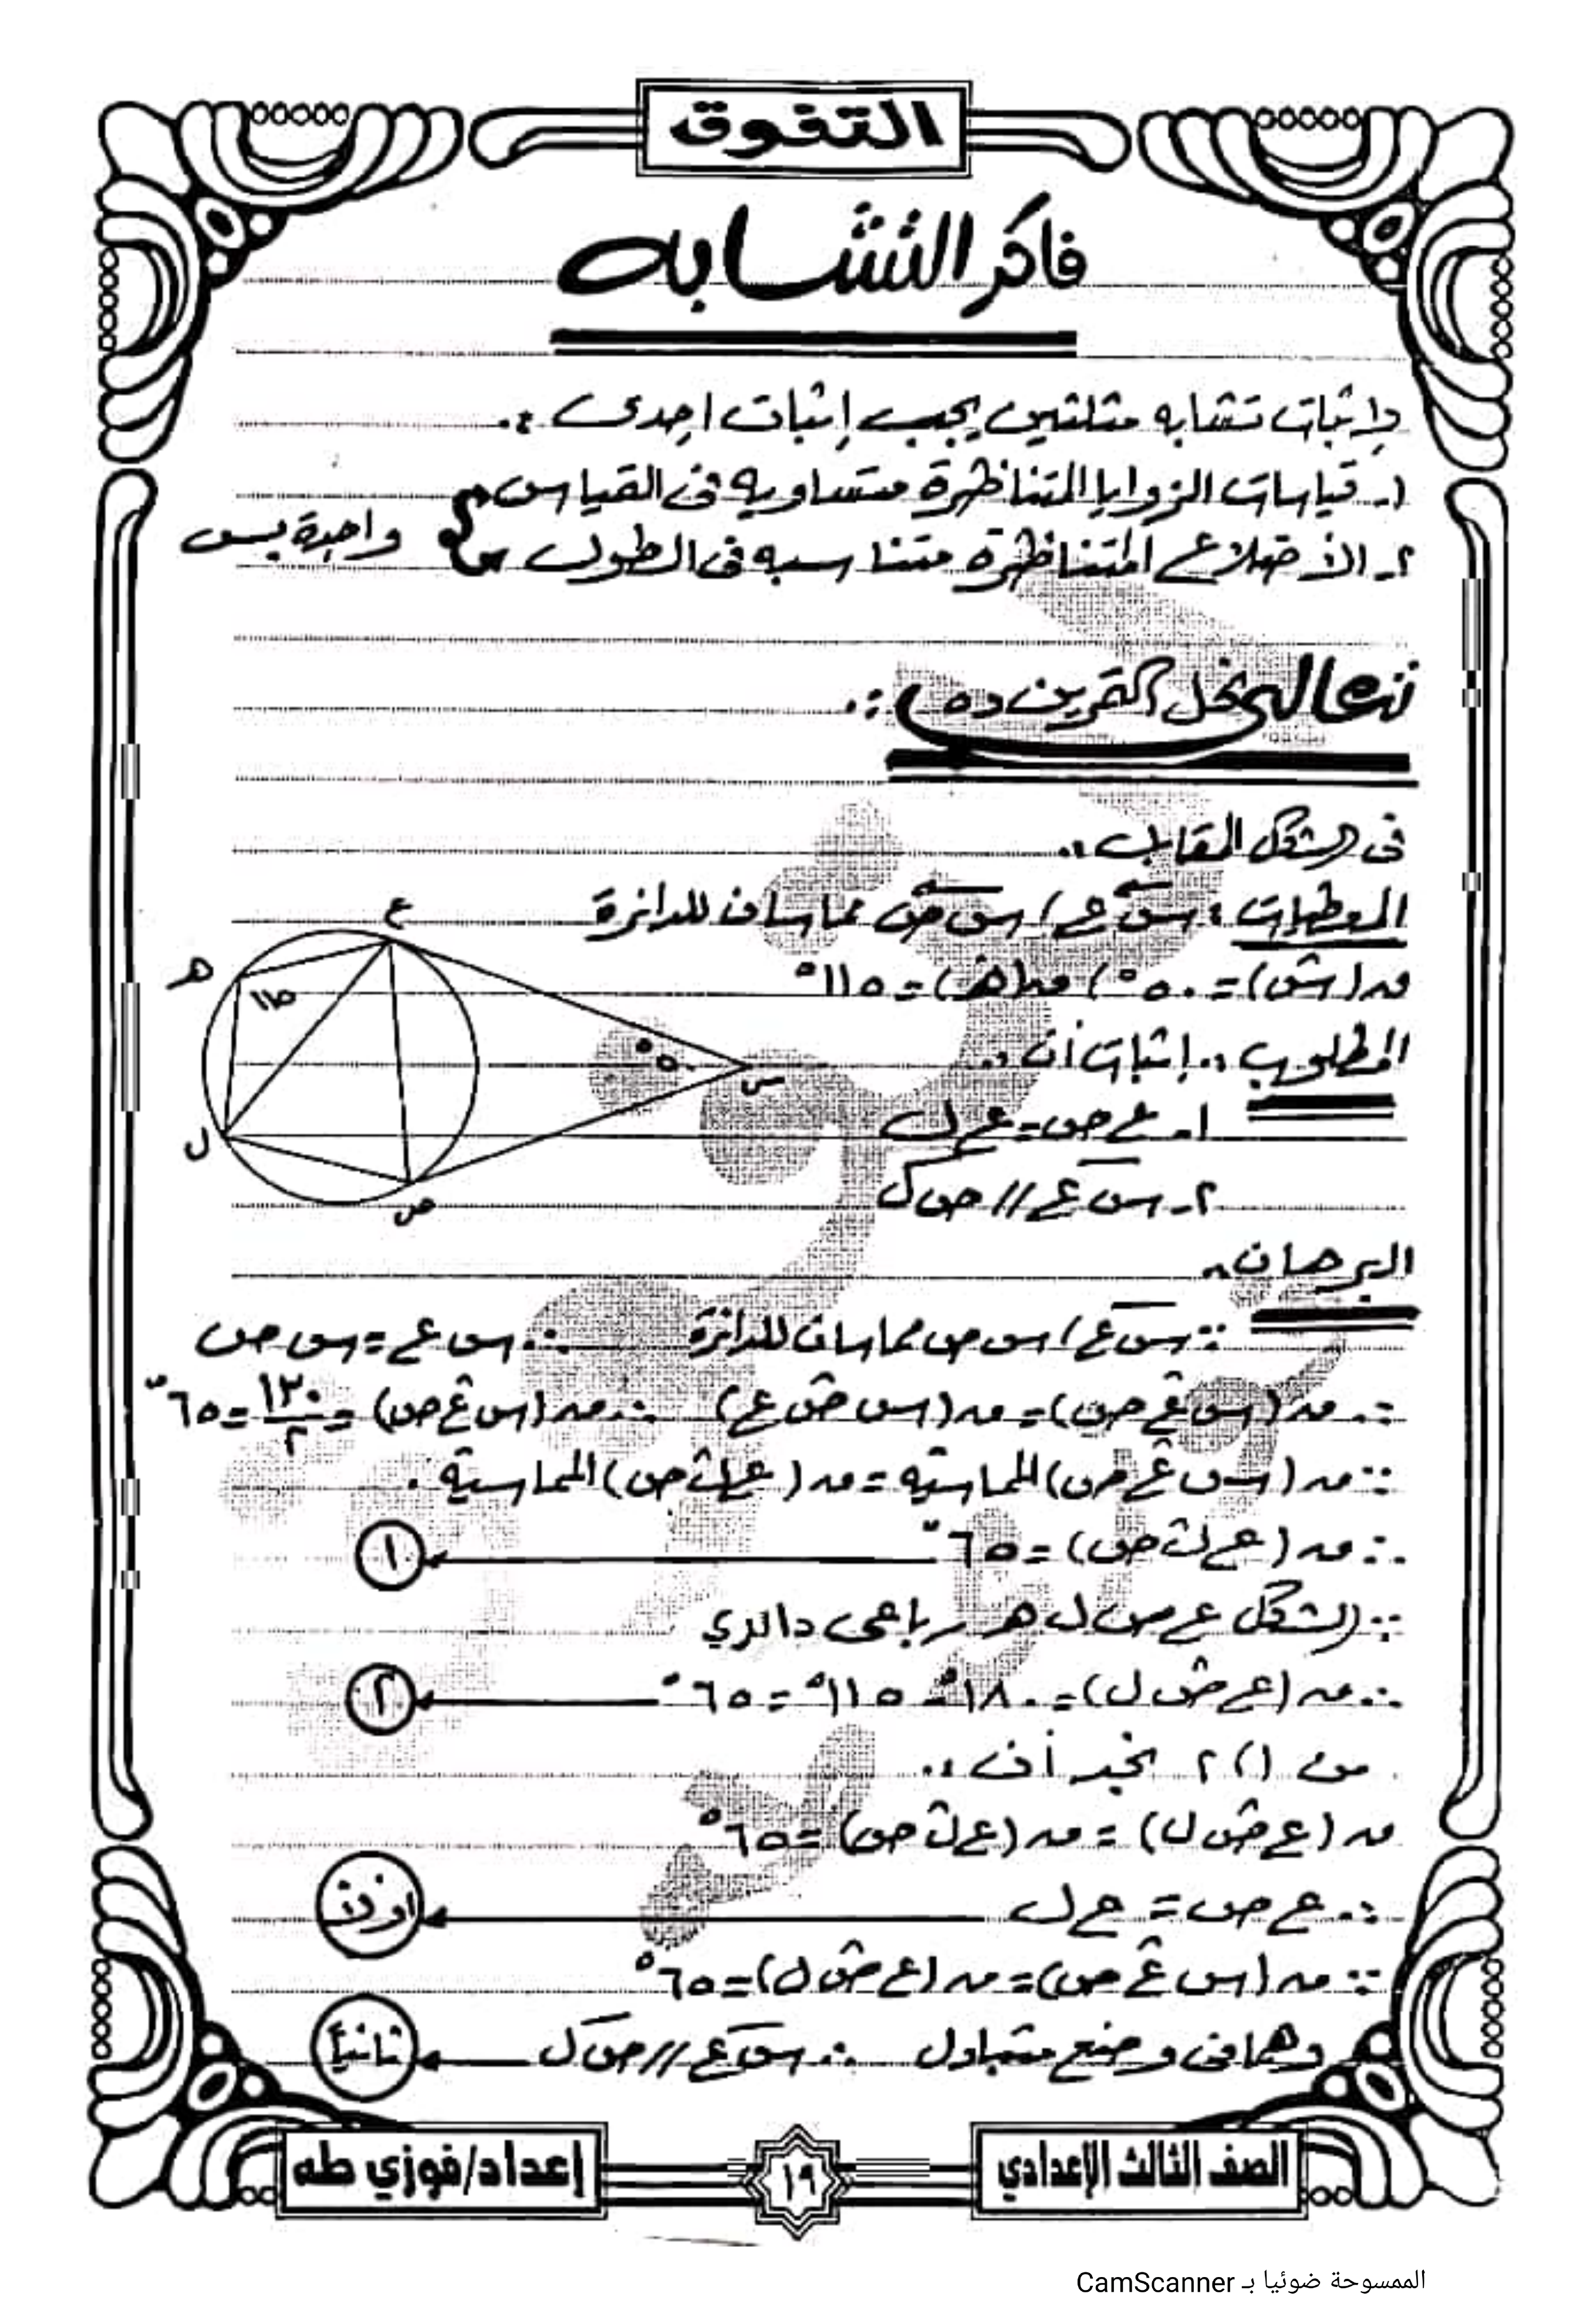 التفوق
فاكر التشابه
لإثبات تشابه مثلثين يجب إثبات احدى :.
١- قياسات الزوايا المتناظرة متساويه فى القياس
٢- الأضلاع المتناظرة متناسبه فى الطول
واحدة بس
تعالى نحل التمرين ده :.
فى الشكل المقابل :.
المعطيات : س ع ، س ص مماسان للدائرة
ق(س) = ٥٠° ، ق(هـ) = ١١٥°
المطلوب :. إثبات أن :.
١- ع ص = ع ل
٢- س ع // ص ل
ع
هـ
١١٥
٥٠°
س
ل
ص
البرهان :.
∵ س ع ، س ص مماسان للدائرة ∴ س ع = س ص
∴ ق(س ع ص) = ق(س ص ع) ∴ ق(س ع ص) = ١٣٠/٢ = ٦٥°
∵ ق(س ع ص) المماسية = ق(ع ل ص) المماسية .
∴ ق(ع ل ص) = ٦٥° ١
∵ الشكل ع ص ل هـ رباعى دائري
∴ ق(ع ص ل) = ١٨٠° - ١١٥° = ٦٥° ٢
من ١ ، ٢ نجد أن :.
ق(ع ص ل) = ق(ع ل ص) = ٦٥°
∴ ع ص = ع ل اولا
∵ ق(س ع ص) = ق(ع ص ل) = ٦٥°
وهما فى وضع متبادل ∴ س ع // ص ل ثانيا
الصف الثالث الإعدادي
١٩
إعداد/فوزي طه
الممسوحة ضوئيا بـ CamScanner